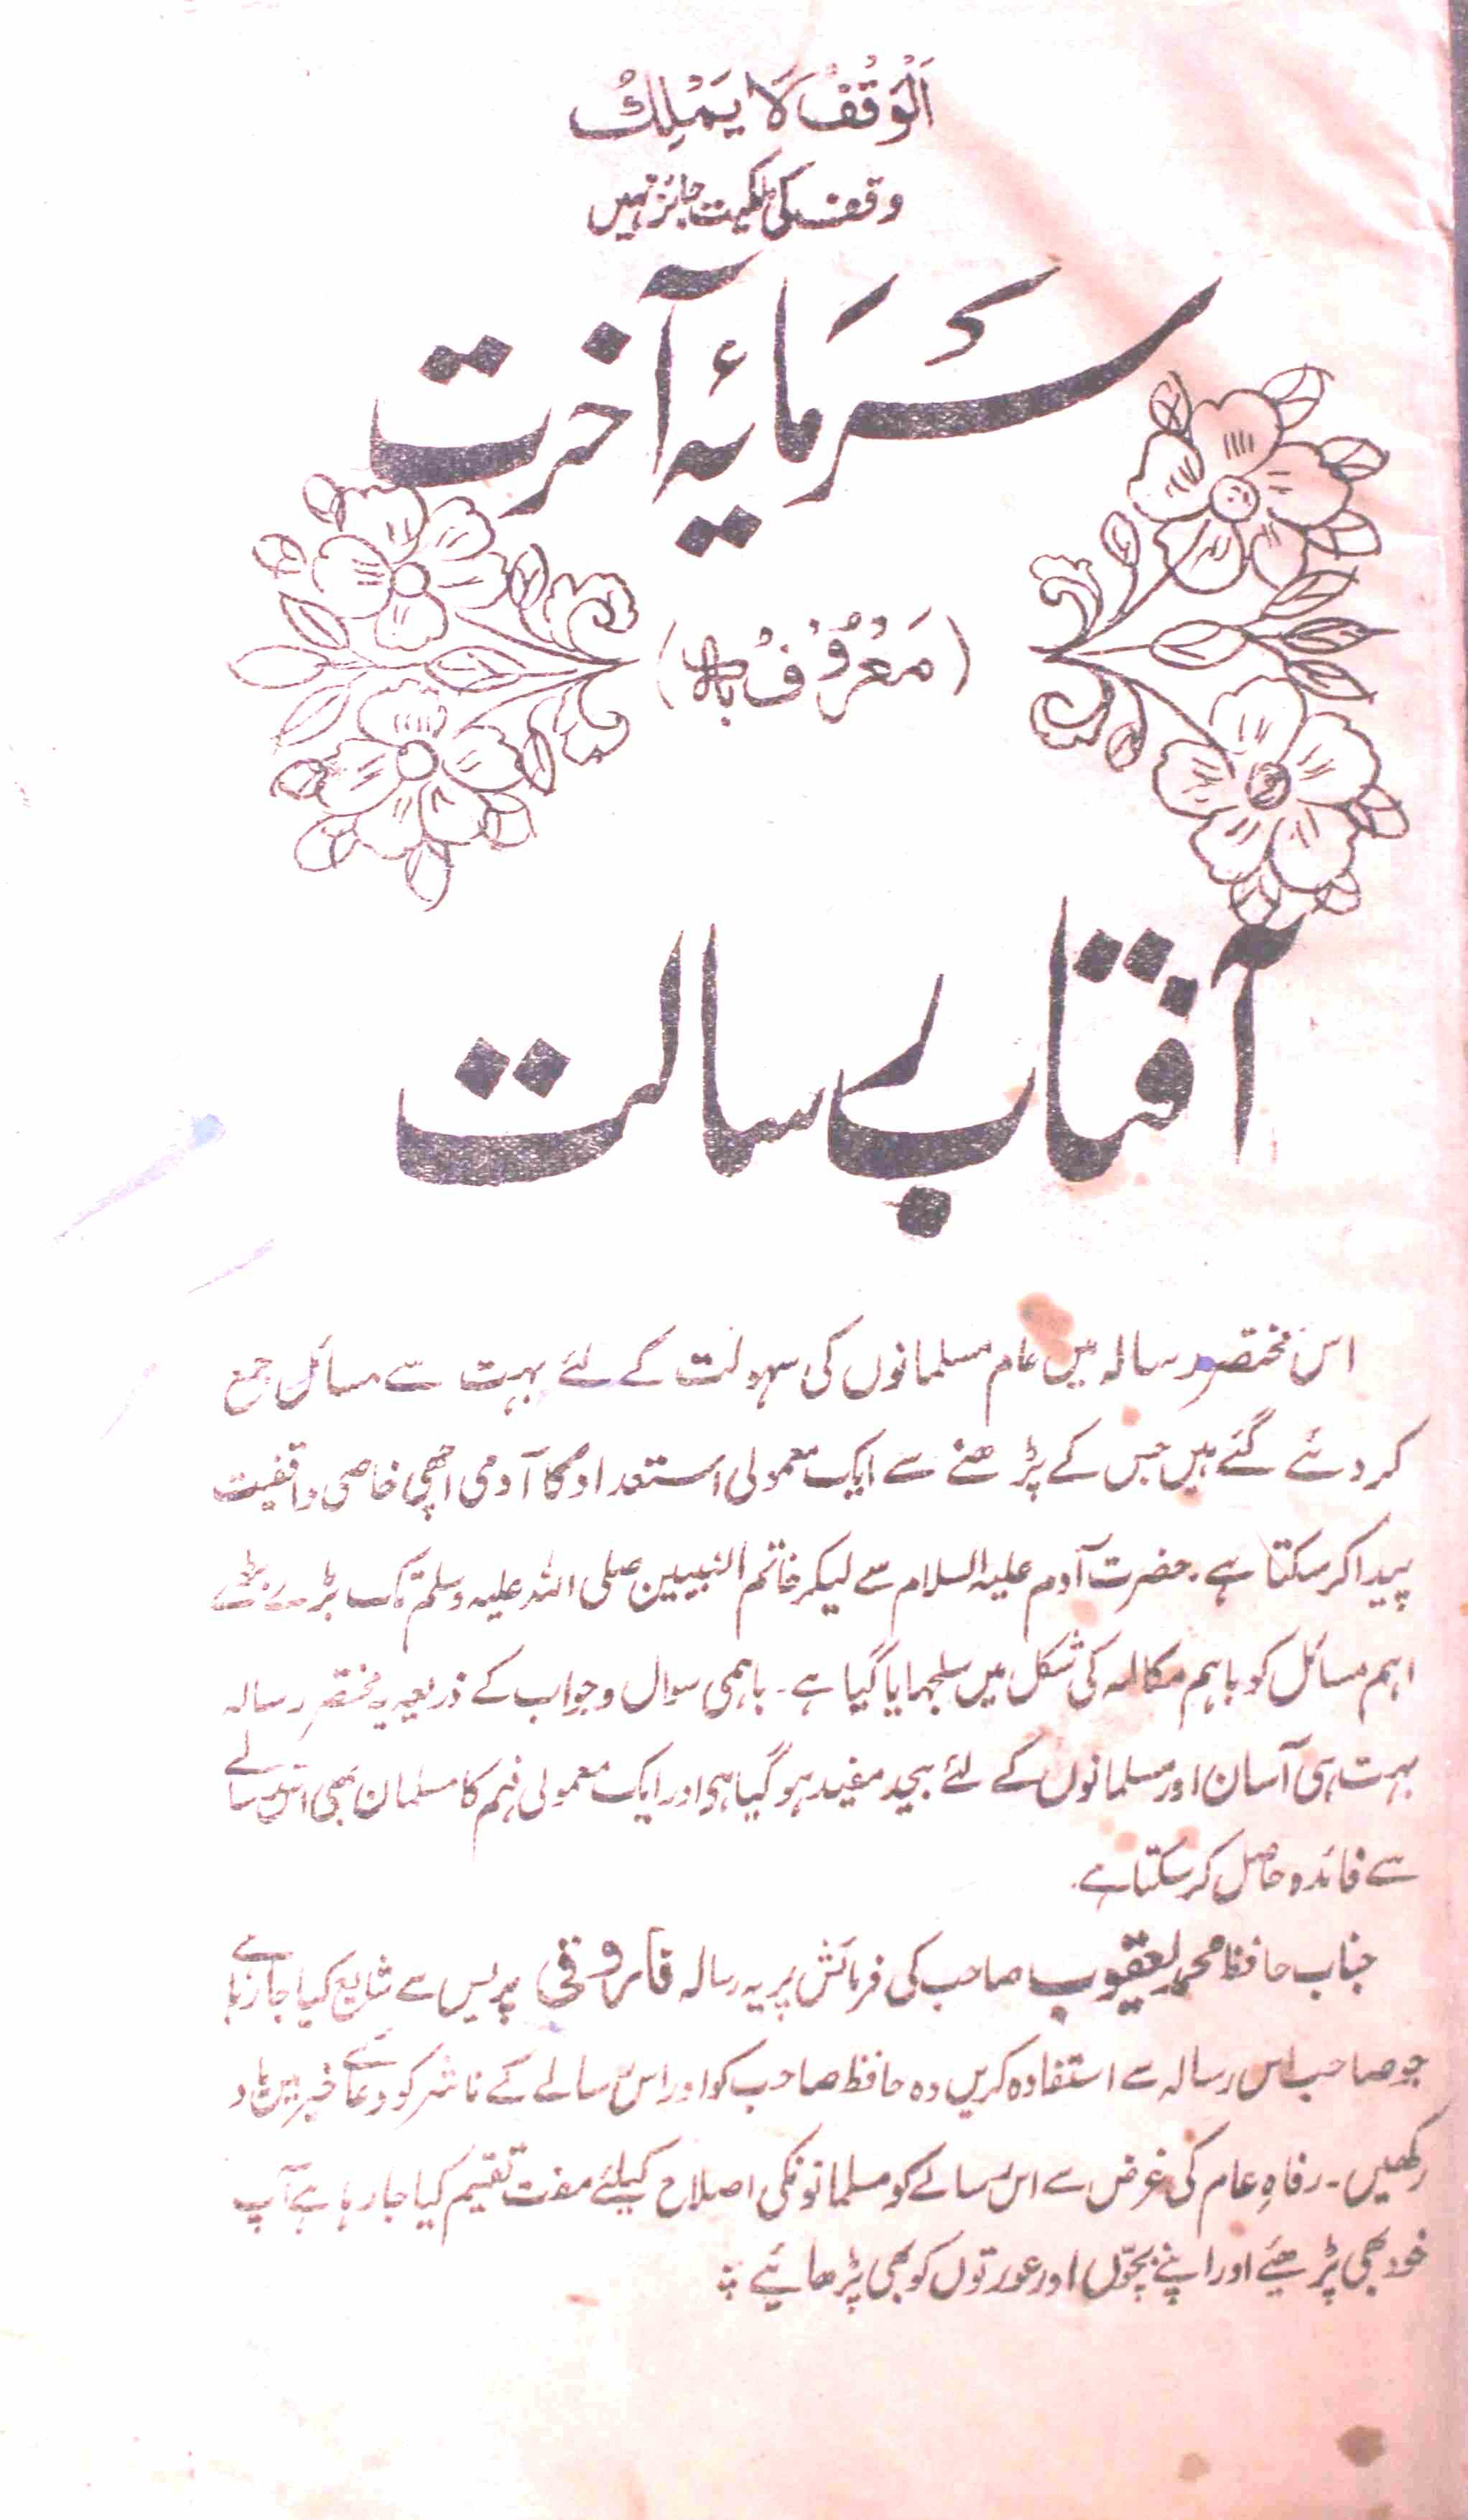 اَلْوَقْفُ لَا یَمْلِكُ
وقف کی ملکیت جائز نہیں
سَرمَایۂ آخرت
(مَعْرُوْفْ بہ)
آفتاب رسالت
اس مختصر رسالہ میں عام مسلمانوں کی سہولت کے لئے بہت سے مسائل جمع
کر دئے گئے ہیں جس کے پڑھنے سے ایک معمولی استعداد کا آدمی اچھی خاصی واقفیت
پیدا کر سکتا ہے۔ حضرت آدم علیہ السلام سے لیکر خاتم النبیین صلی اللہ علیہ وسلم تک بڑے بڑے
اہم مسائل کو باہم مکالمہ کی شکل میں سلجہایا گیا ہے۔ باہمی سوال وجواب کے ذریعہ یہ مختصر رسالہ
بہت ہی آسان اور مسلمانوں کے لئے بیحد مفید ہو گیا ہو اور ایک معمولی فہم کا مسلمان بھی اس رسالے
سے فائدہ حاصل کر سکتا ہے۔
جناب حافظ محمد یعقوب صاحب کی فرمائش پر یہ رسالہ فاروقی پریس سے شایع کیا جا رہا ہے
جو صاحب اس رسالہ سے استفادہ کریں وہ حافظ صاحب کو اور اس رسالے کے ناشر کو دعائے خیر میں یاد
رکھیں۔ رفاہِ عام کی غرض سے اس رسالے کو مسلمانونکی اصلاح کیلئے مفت تقسیم کیا جا رہا ہے آپ
خود بھی پڑھیئے اور اپنے بچّوں اور عورتوں کو بھی پڑھائیے